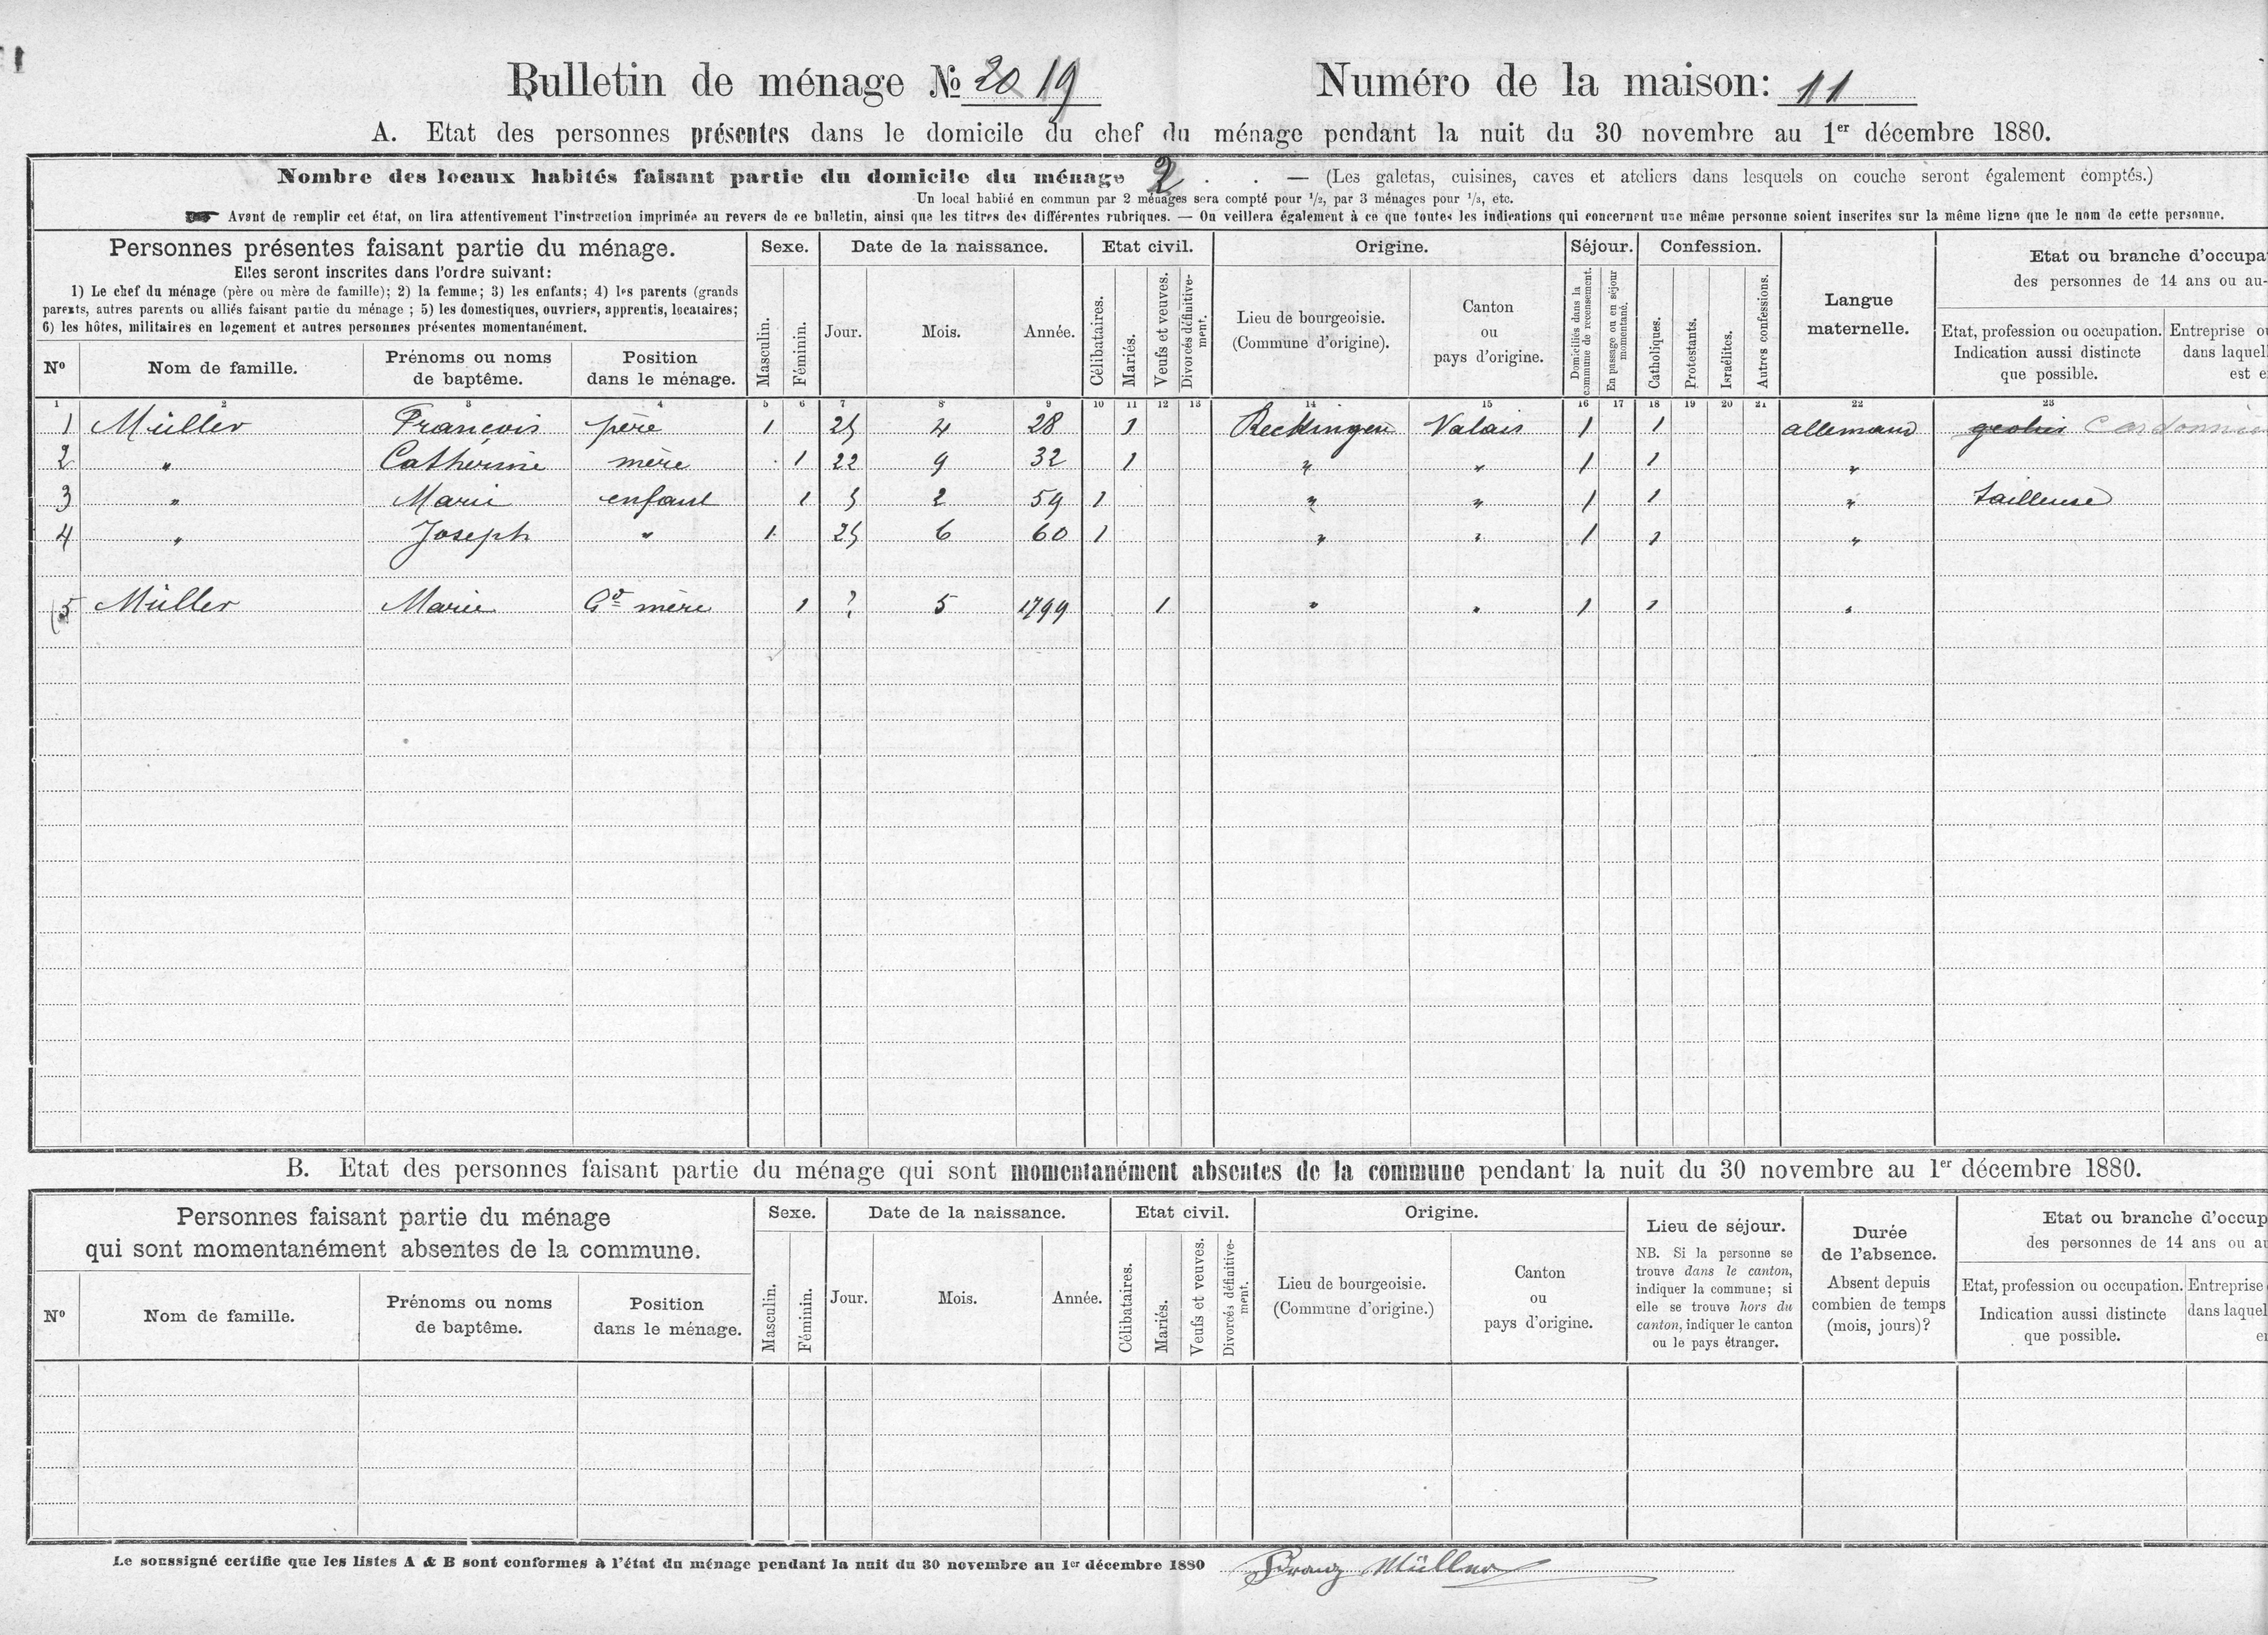 Bulletin de ménage № 20 19 Numéro de la maison: 11
A. Etat des personnes présentes dans le domicile du chef du ménage pendant la nuit du 30 novembre au 1er décembre 1880.
Nombre des locaux habités faisant partie du domicile du ménage 2 . . — (Les galetas, cuisines, caves et ateliers dans lesquels on couche seront également comptés.)
Un local habité en commun par 2 ménages sera compté pour 1/2, par 3 ménages pour 1/3, etc.
Avant de remplir cet état, on lira attentivement l'instruction imprimée au revers de ce bulletin, ainsi que les titres des différentes rubriques. — On veillera également à ce que toutes les indications qui concernent une même personne soient inscrites sur la même ligne que le nom de cette personne.
Personnes présentes faisant partie du ménage.
Elles seront inscrites dans l'ordre suivant:
1) Le chef du ménage (père ou mère de famille); 2) la femme; 3) les enfants; 4) les parents (grands
parents, autres parents ou alliés faisant partie du ménage ; 5) les domestiques, ouvriers, apprentis, locataires;
6) les hôtes, militaires en logement et autres personnes présentes momentanément.
Nº Nom de famille. Prénoms ou noms de baptême. Position dans le ménage.
Sexe. Masculin. Féminin.
Date de la naissance. Jour. Mois. Année.
Etat civil. Célibataires. Mariés. Veufs et veuves. Divorcés définitive-ment.
Origine. Lieu de bourgeoisie. (Commune d'origine). Canton ou pays d'origine.
Séjour. Domiciliés dans la commune de recensement. En passage ou en séjour momentané.
Confession. Catholiques. Protestants. Israélites. Autres confessions.
Langue maternelle.
Etat ou branche d'occupa
des personnes de 14 ans ou au-
Etat, profession ou occupation. Indication aussi distincte que possible.
Entreprise o
dans laquel
est e
1 2 3 4 5 6 7 8 9 10 11 12 13 14 15 16 17 18 19 20 21 22 23
1 Müller François père 1 25 4 28 1 Reckingen Valais 1 1 allemand geolier Cordonnier
2 " Catherine mère 1 22 9 32 1 " " 1 1 "
3 " Marie enfant 1 5 2 59 1 " " 1 1 " tailleuse
4 " Joseph " 1 25 6 60 1 " " 1 1 "
5 Müller Marie Gd mère 1 ? 5 1799 1 " " 1 1 "
B. Etat des personnes faisant partie du ménage qui sont momentanément absentes de la commune pendant la nuit du 30 novembre au 1er décembre 1880.
Personnes faisant partie du ménage
qui sont momentanément absentes de la commune.
Nº Nom de famille. Prénoms ou noms de baptême. Position dans le ménage.
Sexe. Masculin. Féminin.
Date de la naissance. Jour. Mois. Année.
Etat civil. Célibataires. Mariés. Veufs et veuves. Divorcés définitive-ment.
Origine. Lieu de bourgeoisie. (Commune d'origine.) Canton ou pays d'origine.
Lieu de séjour.
NB. Si la personne se
trouve dans le canton,
indiquer la commune; si
elle se trouve hors du
canton, indiquer le canton
ou le pays étranger.
Durée
de l'absence.
Absent depuis
combien de temps
(mois, jours)?
Etat ou branche d'occup
des personnes de 14 ans ou au
Etat, profession ou occupation. Indication aussi distincte que possible.
Entreprise
dans laquel
e
Le soussigné certifie que les listes A & B sont conformes à l'état du ménage pendant la nuit du 30 novembre au 1er décembre 1880 Franz Müller